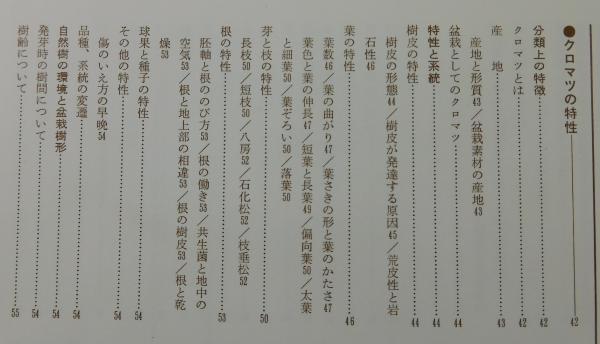 ●クロマツの特性 42
分類上の特徴 42
クロマツとは 42
産　地 43
産地と形質43／盆栽素材の産地43
盆栽としてのクロマツ 44
特性と系統 44
樹皮の特性 44
樹皮の形態44／樹皮が発達する原因45／荒皮性と岩
石性46
葉の特性 46
葉数46／葉の曲がり47／葉さきの形と葉のかたさ47
葉色と葉の伸長47／短葉と長葉49／偏向葉50／太葉
と細葉50／葉ぞろい50／落葉50
芽と枝の特性 50
長枝50／短枝50／八房52／石化松52／枝垂松52
根の特性 53
胚軸と根ののび方53／根の働き53／共生菌と地中の
空気53／根と地上部の相違53／根の樹皮53／根と乾
燥53
球果と種子の特性 54
その他の特性 54
傷のいえ方の早晩54
品種、系統の変遷 54
自然樹の環境と盆栽樹形 54
発芽時の樹間について 54
樹齢について 55